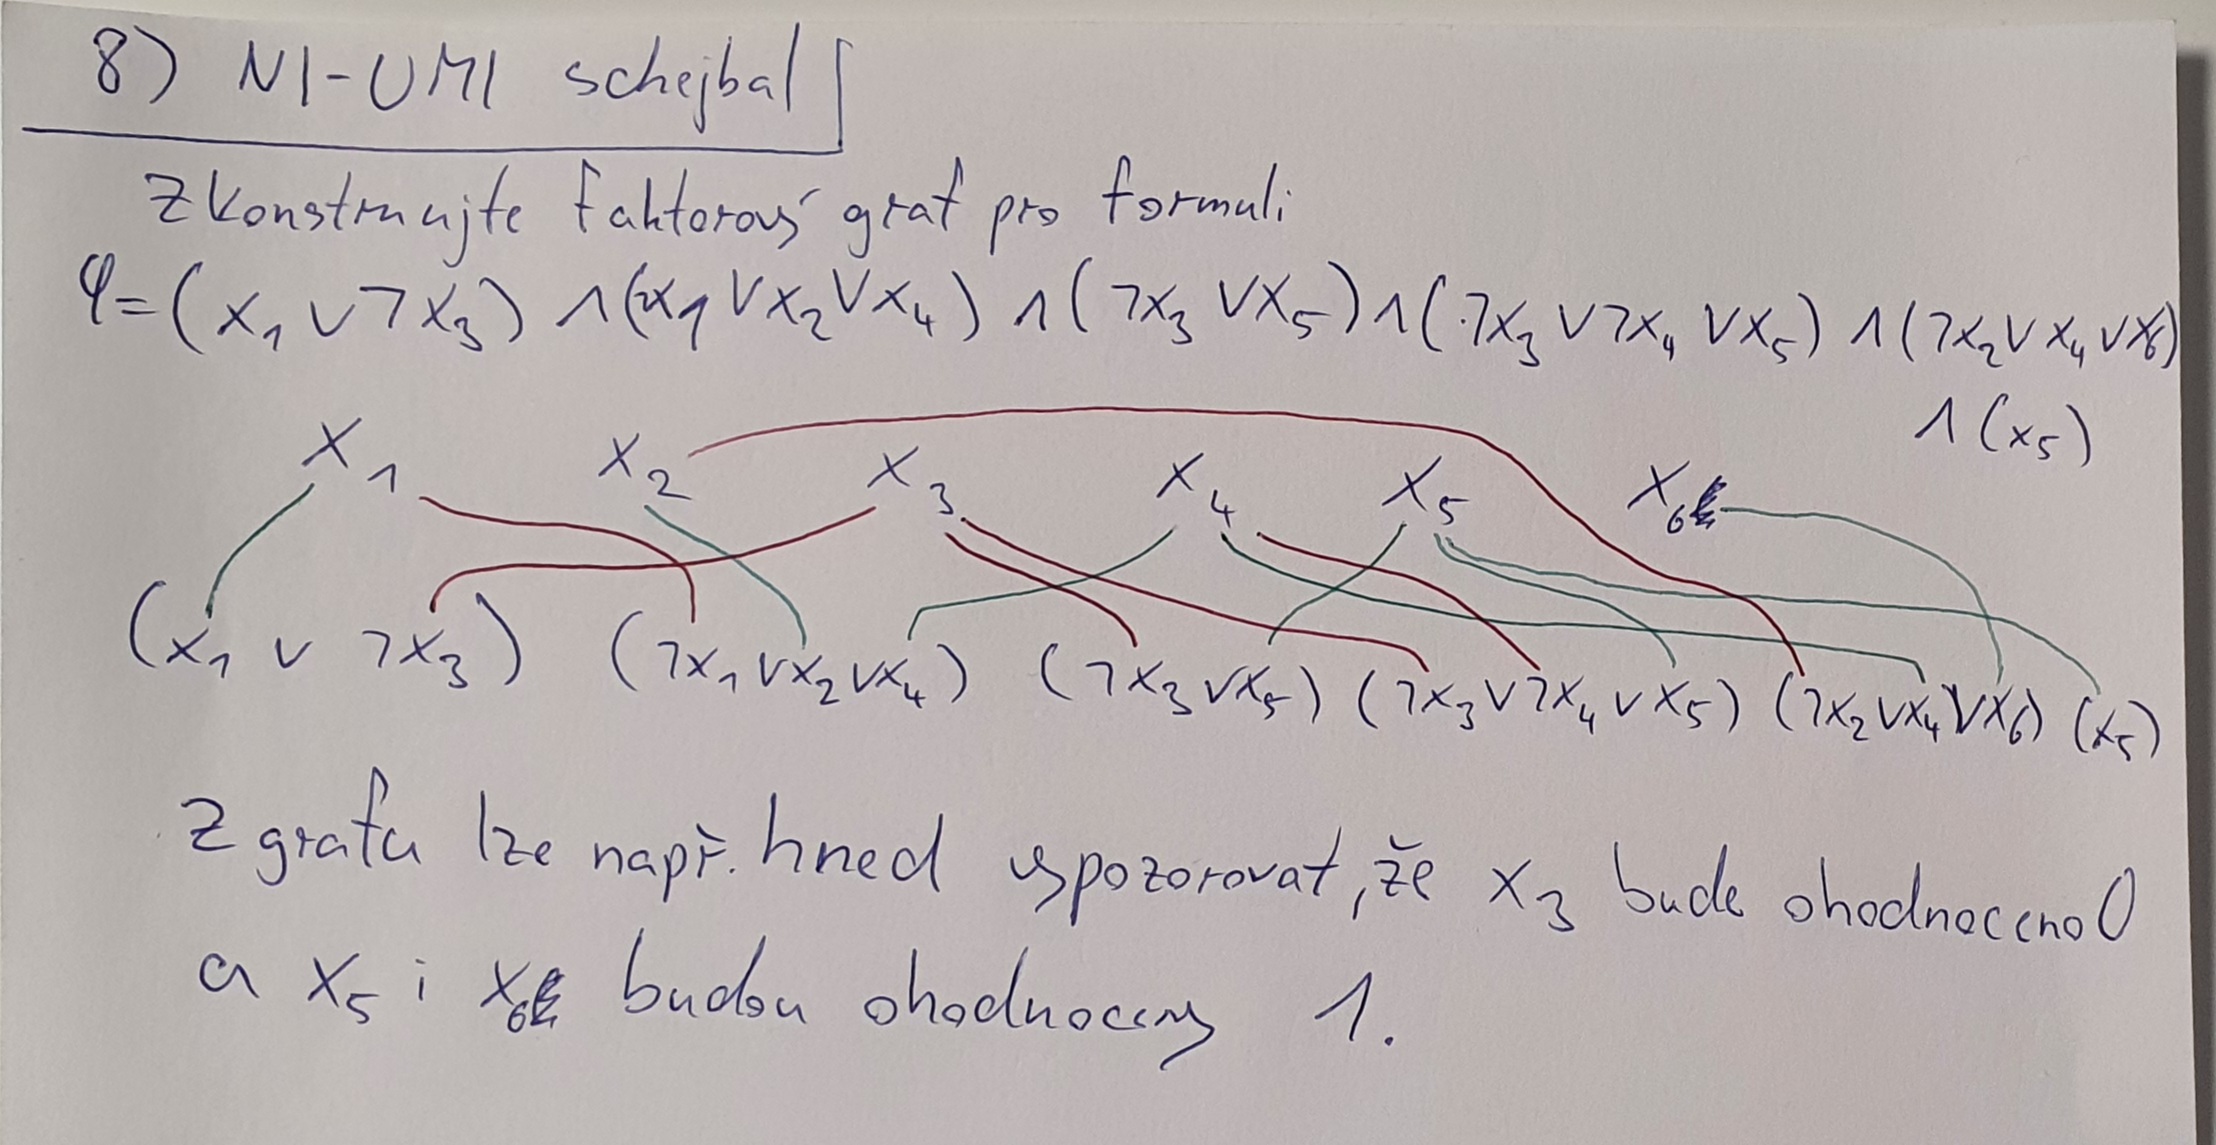 8) NI-UMI schejbal
Zkonstruujte faktorový graf pro formuli
φ=(x₁ ∨ ¬x₃) ∧ (¬x₁ ∨ x₂ ∨ x₄) ∧ (¬x₃ ∨ x₅) ∧ (¬x₃ ∨ ¬x₄ ∨ x₅) ∧ (¬x₂ ∨ x₄ ∨ x₆)
∧ (x₅)
x₁ x₂ x₃ x₄ x₅ x₆
(x₁ ∨ ¬x₃) (¬x₁ ∨ x₂ ∨ x₄) (¬x₃ ∨ x₅) (¬x₃ ∨ ¬x₄ ∨ x₅) (¬x₂ ∨ x₄ ∨ x₆) (x₅)
Z grafu lze např. hned vypozorovat, že x₃ bude ohodnoceno 0
a x₅ i x₆ budou ohodnoceny 1.